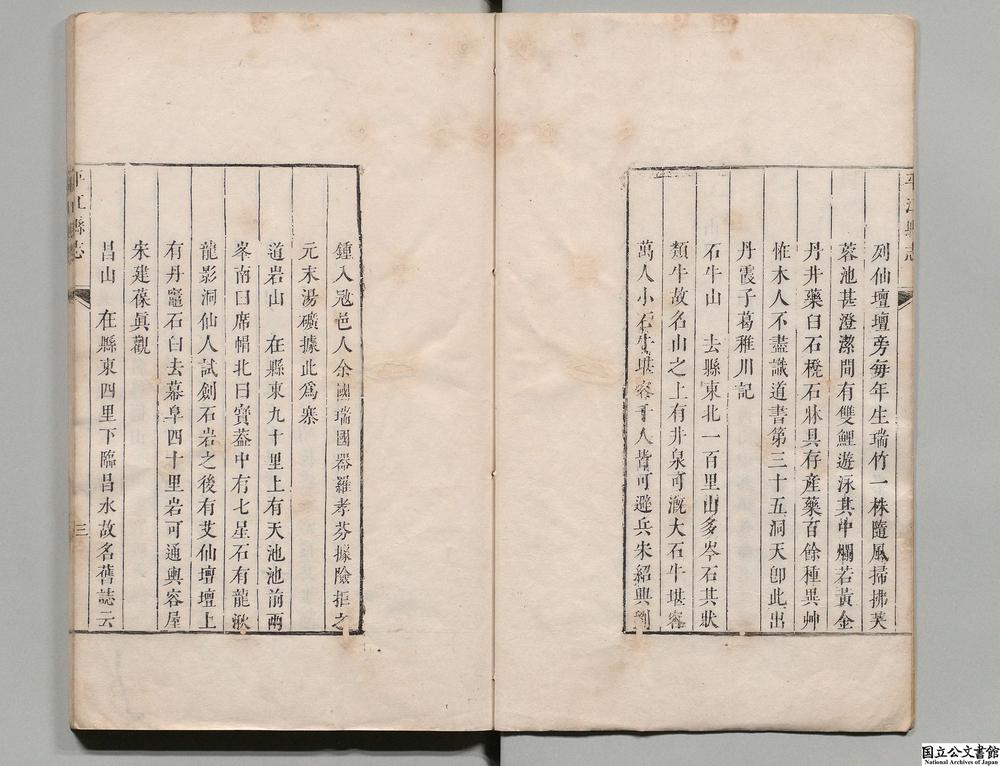 列仙壇壇旁每年生瑞竹一株隨風掃拂芙
蓉池甚澄潔間有雙鯉遊泳其中爛若黃金
丹井藥臼石櫈石牀具存產藥百餘種異艸
恠木人不盡識道書第三十五洞天卽此出
丹霞子葛稚川記
石牛山 去縣東北一百里山多岑石其狀
類牛故名山之上有井泉可漑大石牛堪容
萬人小石牛堪容千人皆可避兵朱紹興劉
平江縣志
鍾入冦邑人余國瑞國器羅孝芬據險拒之
元末湯礦據此爲寨
道岩山 在縣東九十里上有天池池前兩
峯南曰席帽北曰寶葢中有七星石有龍湫
龍影洞仙人試劍石岩之後有艾仙壇壇上
有丹竈石臼去幕阜四十里岩可通輿容屋
宋建葆眞觀
昌山 在縣東四里下臨昌水故名舊誌云
平江縣志
三
国立公文書館
National Archives of Japan